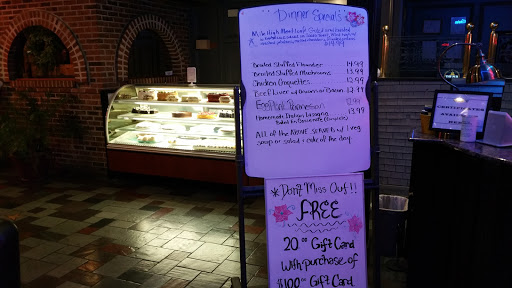 Dinner Specials
Mile High Meatloaf
14.99
Breaded Stuffed Flounder 14.99
Breaded Stuffed Mushrooms 13.99
Chicken Croquettes 12.99
Beef Liver w/ Onions or Bacon 12.99
Eggplant Parmesan 12.99
Homemade Italian Lasagna 13.99
ALL of the Above SERVED w/ 1 veg
soup or salad + cake of the day.
*Don't Miss Out!!
FREE
20.00 Gift Card
With purchase of
$100.00 Gift Card